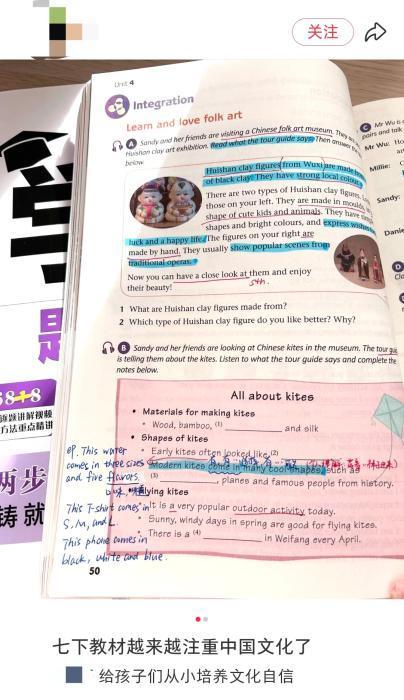 关注
Unit 4
Integration
Learn and love folk art
A Sandy and her friends are visiting a Chinese folk art museum. They
Huishan clay art exhibition. Read what the tour guide says. Then answer
below.
Huishan clay figures from Wuxi are made
of black clay. They have strong local colour.
There are two types of Huishan clay figures.
those on your left. They are made in moulds
shape of cute kids and animals. They have
shapes and bright colours, and express wishes
luck and a happy life. The figures on your right are
made by hand. They usually show popular scenes from
traditional operas.
Now you can have a close look at them and enjoy
their beauty!
sth.
1 What are Huishan clay figures made from?
2 Which type of Huishan clay figure do you like better? Why?
B Sandy and her friends are looking at Chinese kites in the museum. The tour
is telling them about the kites. Listen to what the tour guide says and complete the
notes below.
All about kites
• Materials for making kites
• Wood, bamboo, (1) and silk
• Shapes of kites
• Early kites often looked like (2)
• Modern kites come in many cool shapes, such as
(3) , planes and famous people from history.
Flying kites
It is a very popular outdoor activity today.
• Sunny, windy days in spring are good for flying kites.
• There is a (4) in Weifang every April.
eg. This water
comes in three sizes
and five flavors.
口味
This T-shirt comes in
S, M, and L.
This phone comes in
black, white and blue.
50
C Mr Wu is
pairs and talk
Mr Wu:
Millie:
Sandy:
D
58+8
难题讲解视频
方法重点精讲
两步
铸 就
七下教材越来越注重中国文化了
给孩子们从小培养文化自信